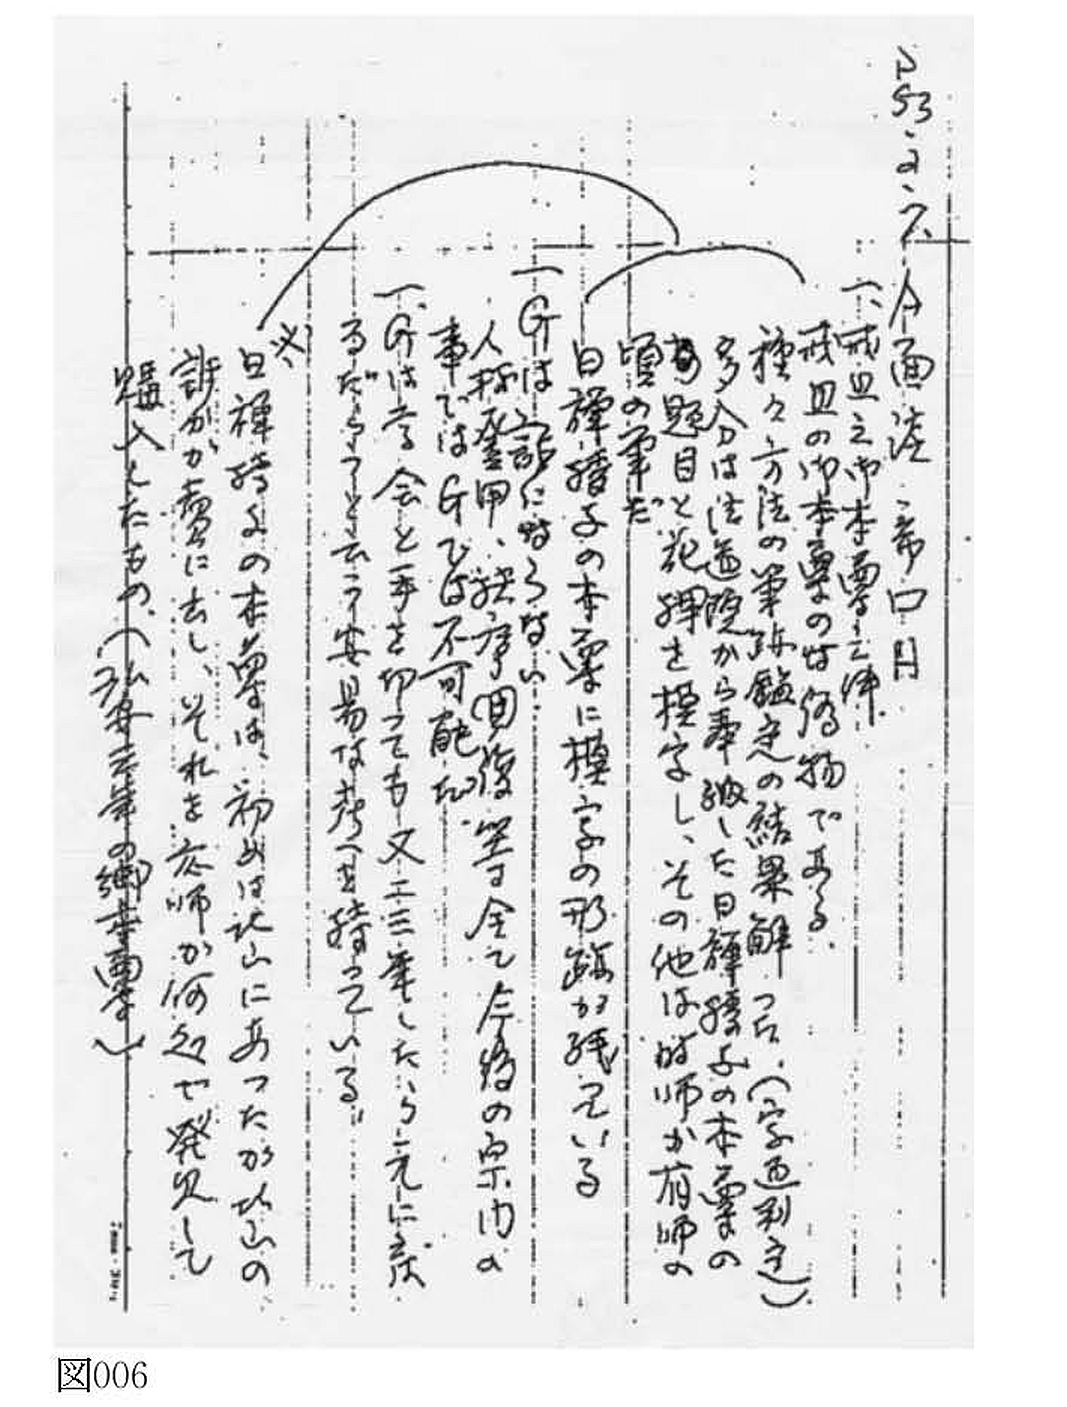 S53.2.7. A面談 帝国H
一、戒旦之御本尊之件
戒旦の御本尊のは偽物である。
種々方法の筆跡鑑定の結果解った。(字画判定)
多分は法道院から奉納した日禅授与の本尊の
題目と花押を模写し、その他は時師か有師の
頃の筆だ
日禅授与の本尊に模写の形跡が残っている
一、Gは話にならない
人材登用、秩序回復等全て今後の宗内の
事ではGでは不可能だ。
一、Gは学会と手を切っても又二三年したら元に戻
るだろうと云う安易な考へを持っている
※
日禅授与の本尊は、初めは北山にあったが北山の
誰かが売に出し、それを応師が何処で発見して
購入したもの。(弘安三年の御本尊)
図006